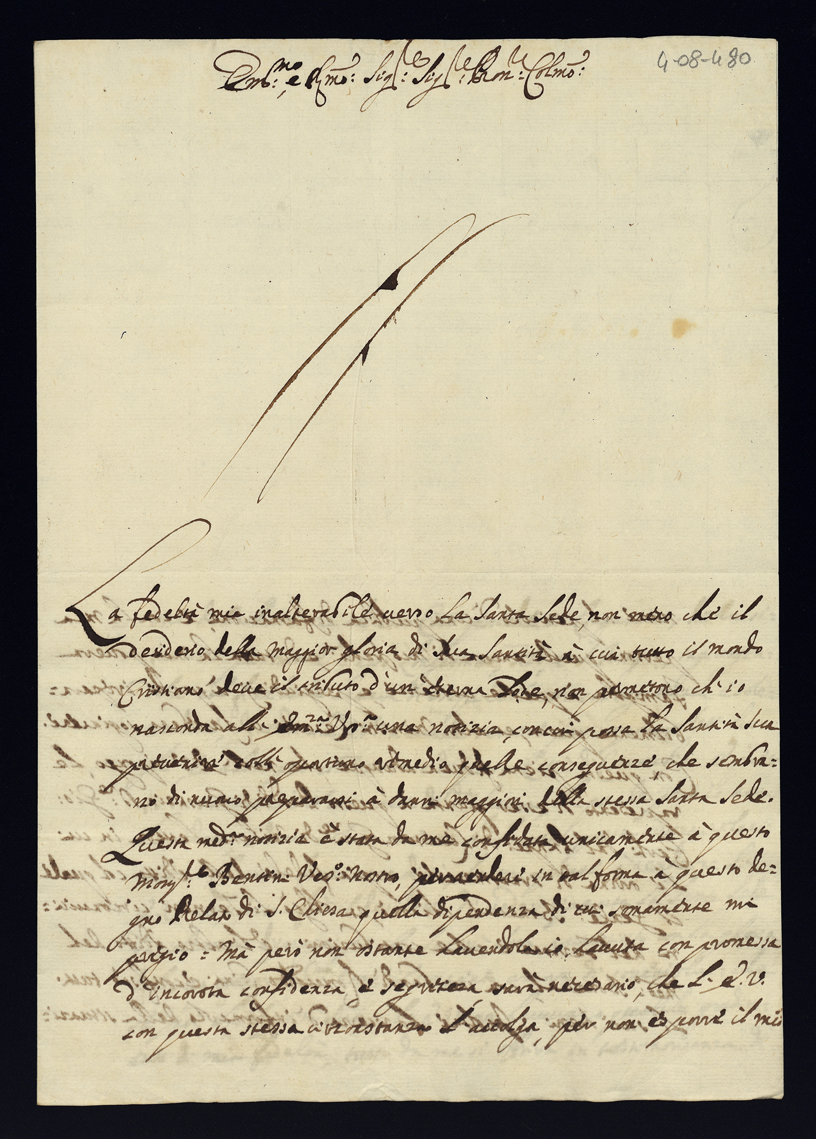 4-08-480
Em:mo, e R.mo: Sig:re Sig:re Pron:e Colmo:
La fedeltà mia inalterabile verso La Santa Sede, non meno che il
desiderio della maggior gloria di Sua Santità à cui tutto il mondo
Cristiano deve il tributo d'un eterna Lode, non permetono ch'io
nasconda all' Em:za V:ra una notizia, con cui possa La Santità Sua
coll' oportuno rimedio quelle conseguenze che sembra-
no di nuovo prepararsi à danni maggiori della stessa Santa Sede.
Questa med:a notizia è stata da me confidata unicamente à questo
Mons:r Bentini Vesc:o Nostro, in tal forma à questo de-
gno Prelato di S. Chiesa quella dipendenza di cui somamente mi
pregio = Mà però non ostante havendola io havuta con promessa
d'incorota confidenza, e segretezza sarà necesario, che L'E.V.
con questa stessa circostanza L'accolga, per non esporre il mio